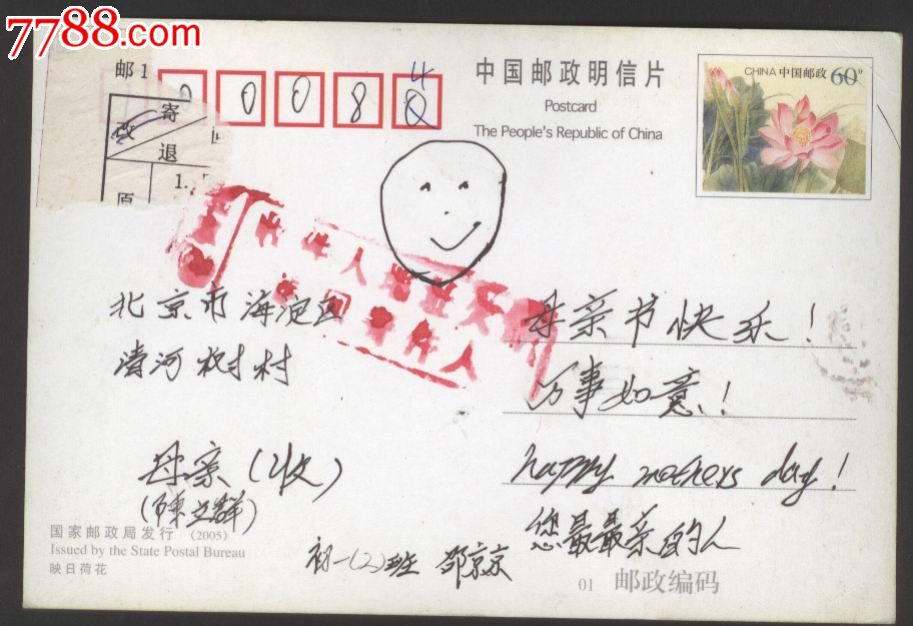 7788.com
邮 1
0 0 8 4
中国邮政明信片
Postcard
The People's Republic of China
CHINA 中国邮政 60分
寄
改
退
1.
原
北京市海淀区
清河树村
母亲(收)
(陈立群)
母亲节快乐!
万事如意!
happy mothers day!
您最最亲的人
初一(2)班 邵京京
国家邮政局发行 (2005)
Issued by the State Postal Bureau
映日荷花
01 邮政编码